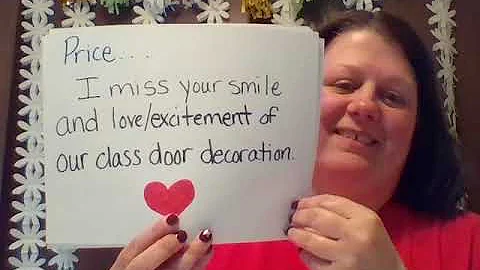 Price...
I miss your smile
and love/excitement of
our class door decoration.